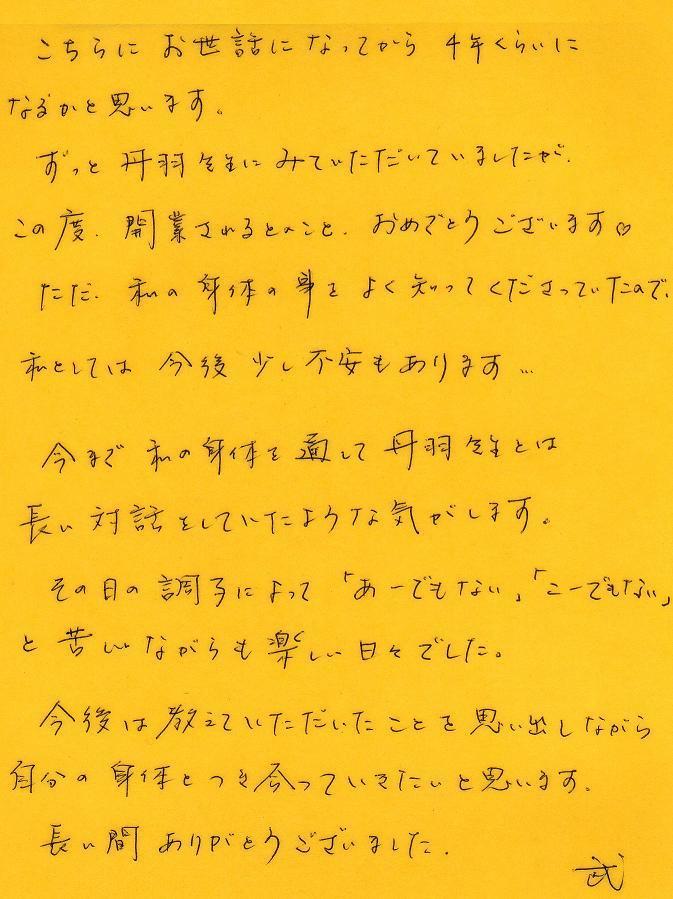 こちらに お世話になってから 4年くらいに
なるかと思います。
ずっと 丹羽先生に みていただいていましたが、
この度、開業されるとのこと、おめでとうございます♡
ただ、私の身体の事を よく知ってくださっていたので、
私としては 今後 少し不安もあります…
今まで 私の身体を通して 丹羽先生とは
長い対話をしていたような気がします。
その日の調子によって「あーでもない」「こーでもない」
と苦しいながらも楽しい日々でした。
今後は教えていただいたことを思い出しながら
自分の身体とつき合っていきたいと思います。
長い間 ありがとうございました。
武